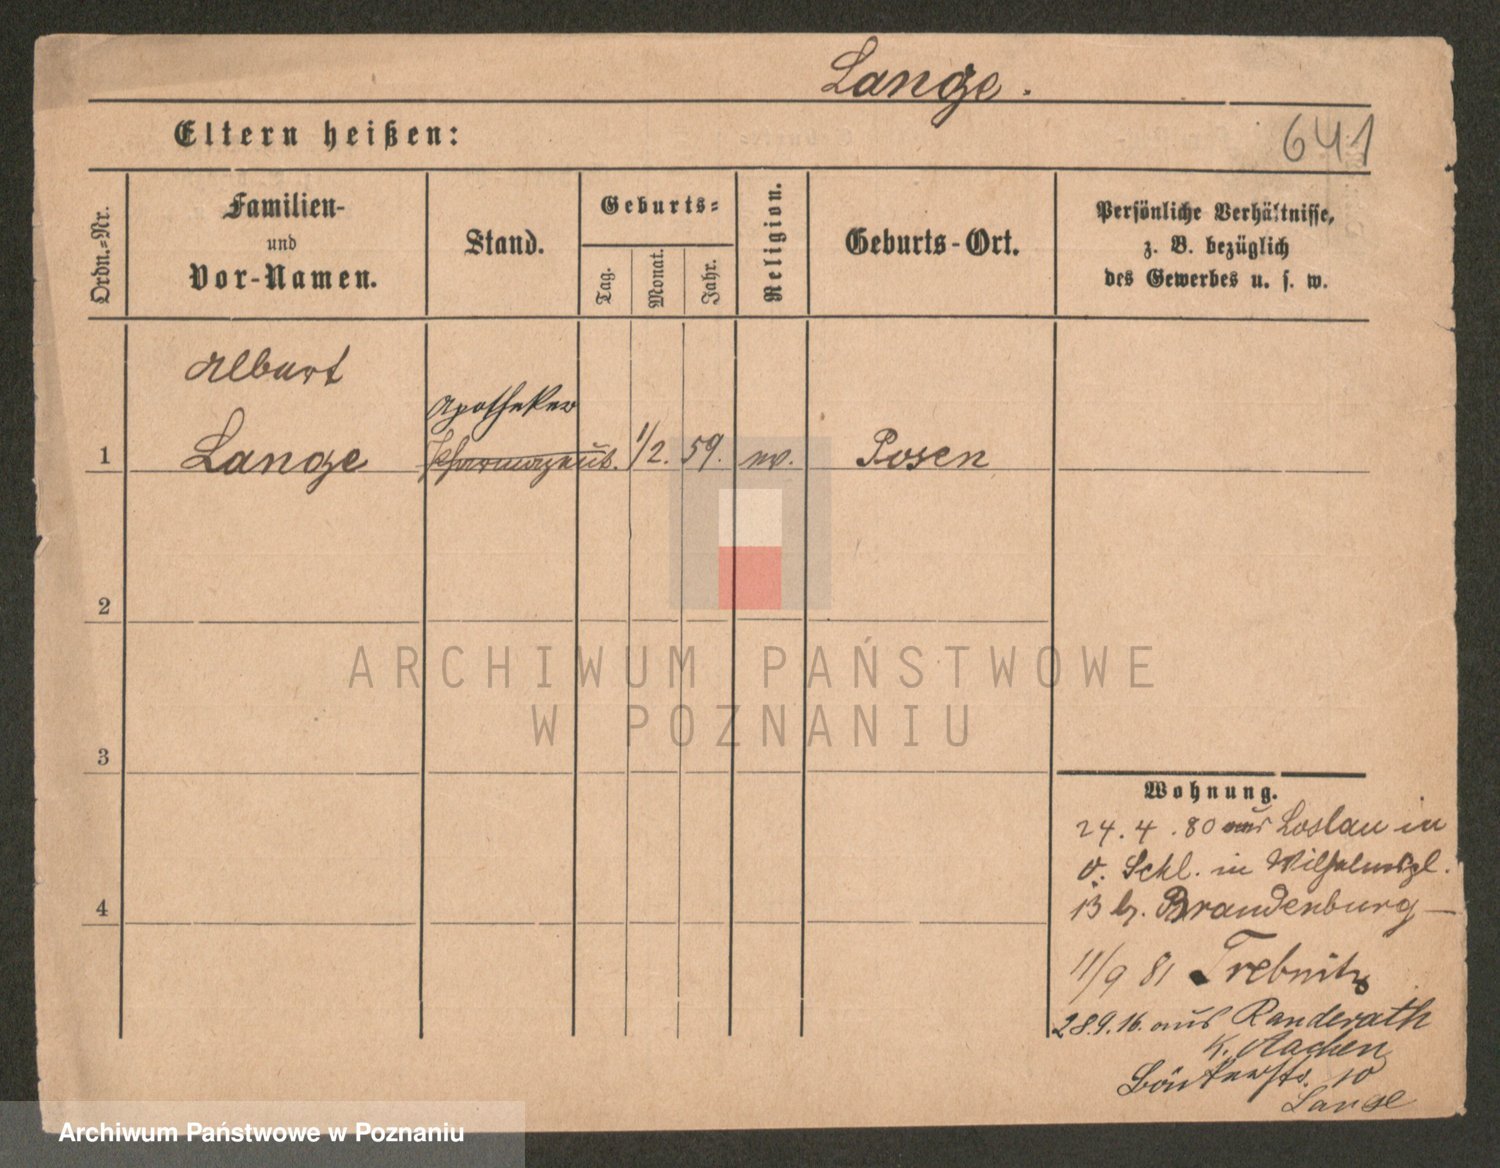 Lange.
641
Eltern heißen:
Ordn.-Nr.
Familien-
und
Vor-Namen.
Stand.
Geburts-
Tag.
Monat.
Jahr.
Religion.
Geburts-Ort.
Persönliche Verhältnisse,
z. B. bezüglich
des Gewerbes u. s. w.
Albert
Apotheker
1 Lange 1/2. 59. ev. Posen
2
3
4
Wohnung.
24. 4. 80 aus Loslau in
O. Schl. in Wilhelmspl.
13 b. Brandenburg
11/9 81 Trebnitz
28.9.16. aus Randerath
K. Aachen
10
Lange
ARCHIWUM PAŃSTWOWE
W POZNANIU
Archiwum Państwowe w Poznaniu